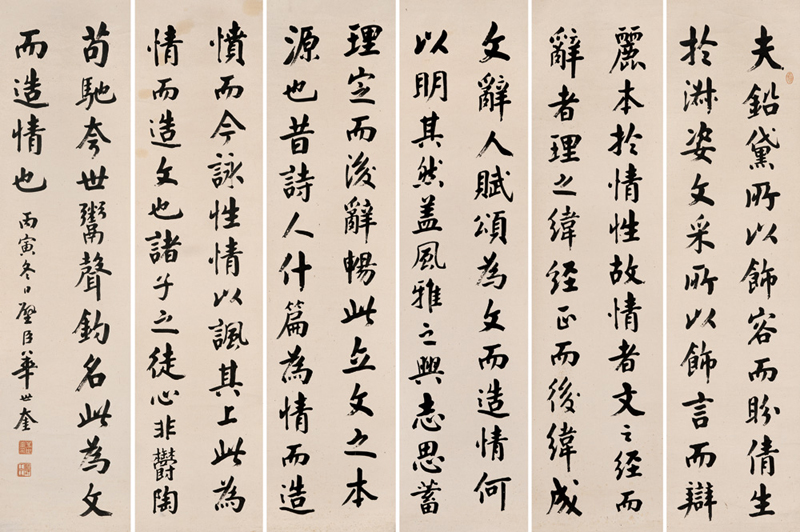 夫鉛黛所以飾容而盼倩生
於淑姿文采所以飾言而辯
麗本於情性故情者文之經而
辭者理之緯經正而後緯成
理定而後辭暢此立文之本
源也昔詩人什篇為情而造
文辭人賦頌為文而造情何
以明其然盖風雅之興志思蓄
憤而今詠性情以諷其上此為
情而造文也諸子之徒心非鬱陶
苟馳夸世鬻聲釣名此為文
而造情也 丙寅冬日璧臣華世奎